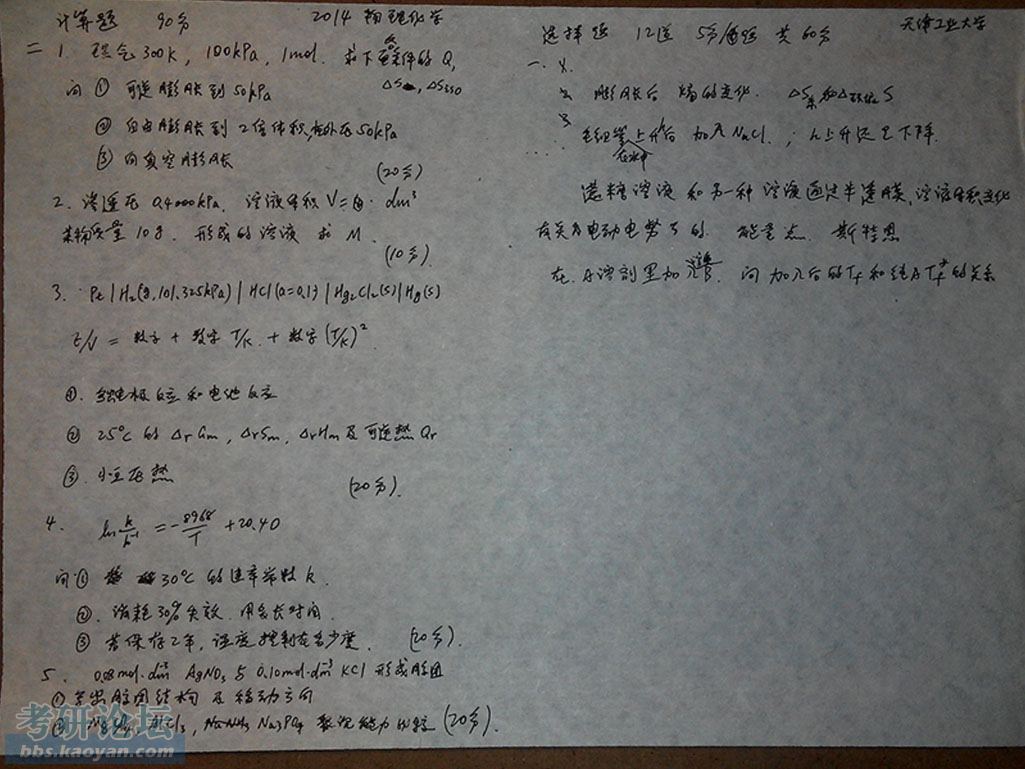 计算题 90分 2014 物理化学
二 1. 理气300k, 100kPa, 1mol. 求下面条件的 Q,
问 ① 可逆膨胀到 50kPa ΔS, ΔSiso
② 自由膨胀到 2倍体积, 恒外压50kPa
③ 向真空膨胀
(20分)
2. 渗透压 0.4000kPa. 溶液体积 V=dm³
某物质量 10g. 形成的溶液 求 M.
(10分).
3. Pt | H₂(g, 101.325kPa) | HCl(a=0.1) | Hg₂Cl₂(s) | Hg(s)
E/V = 数字 + 数字 T/K + 数字 (T/K)²
①. 写电极反应和电池反应
② 25℃ 的 ΔrGm, ΔrSm, ΔrHm 及可逆热 Qr
③. 恒压热
(20分).
4. ln k/h⁻¹ = -8968/T + 20.40
问① 30℃ 的速率常数 k.
②. 消耗30%失效. 用多长时间
③ 若保存2年, 温度控制在多少度. (20分).
5. 0.08mol·dm⁻³ AgNO₃ 与 0.10mol·dm⁻³ KCl 形成胶团
① 写出胶团结构及移动方向
Na₃PO₄ 聚沉能力比较 (20分).
选择题 12道 5分每题 共60分 天津工业大学
一. 1.
2. 膨胀后 熵的变化. ΔS系和
3. 毛细管上升后 加入NaCl, ; h上升还是下降.
在水中
蔗糖溶液 和另一种溶液通过半透膜, 溶液体积变化
有关为电动电势了的. 能量点. 斯特恩
在A溶剂里加 问加入后的Tf和纯A Tf*的关系
考研论坛
bbs.kaoyan.com